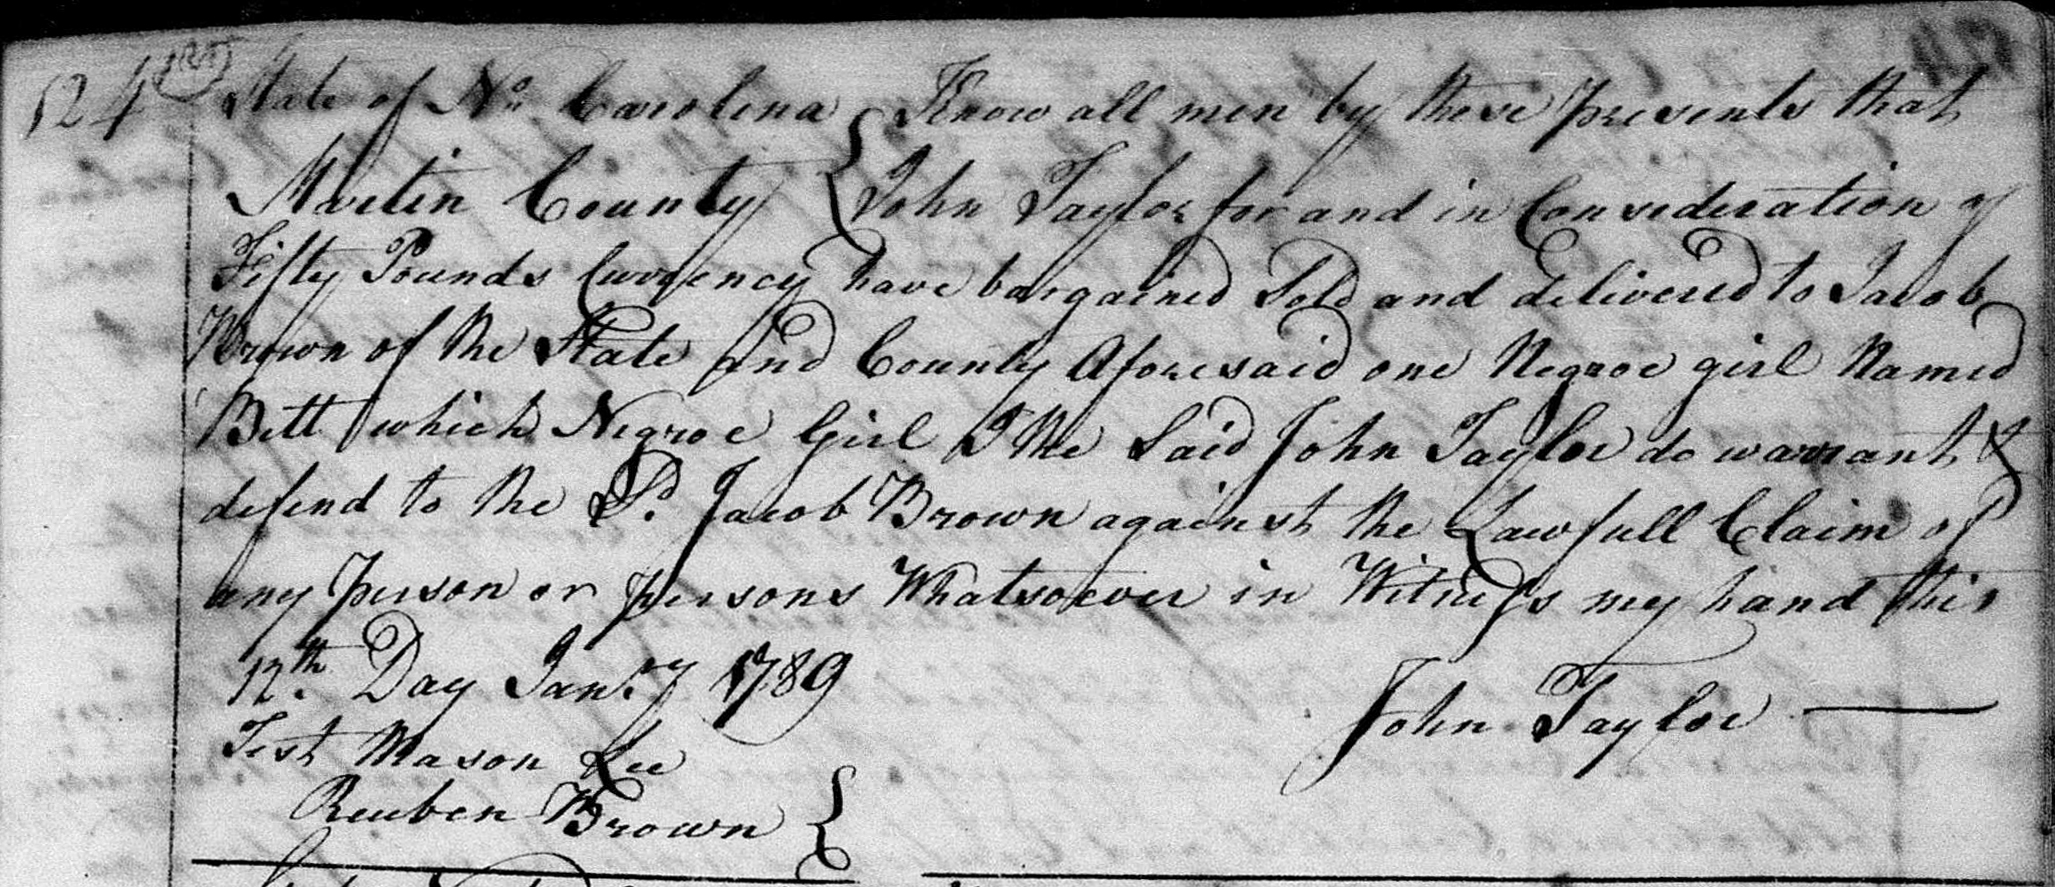 124 State of No. Carolina { Know all men by these presents that
Martin County { John Taylor for and in Consideration of
Fifty Pounds Currency have bargained Sold and delivered to Jacob
Brown of the State and County Aforesaid one Negroe girl Named
Bett which Negroe Girl I the Said John Taylor do warrant &
defend to the Sd. Jacob Brown against the Lawfull Claim of
any person or persons Whatsoever in Witness my hand this
12th. Day Jany 1789
John Taylor
Test Mason Lee
Reuben Brown {